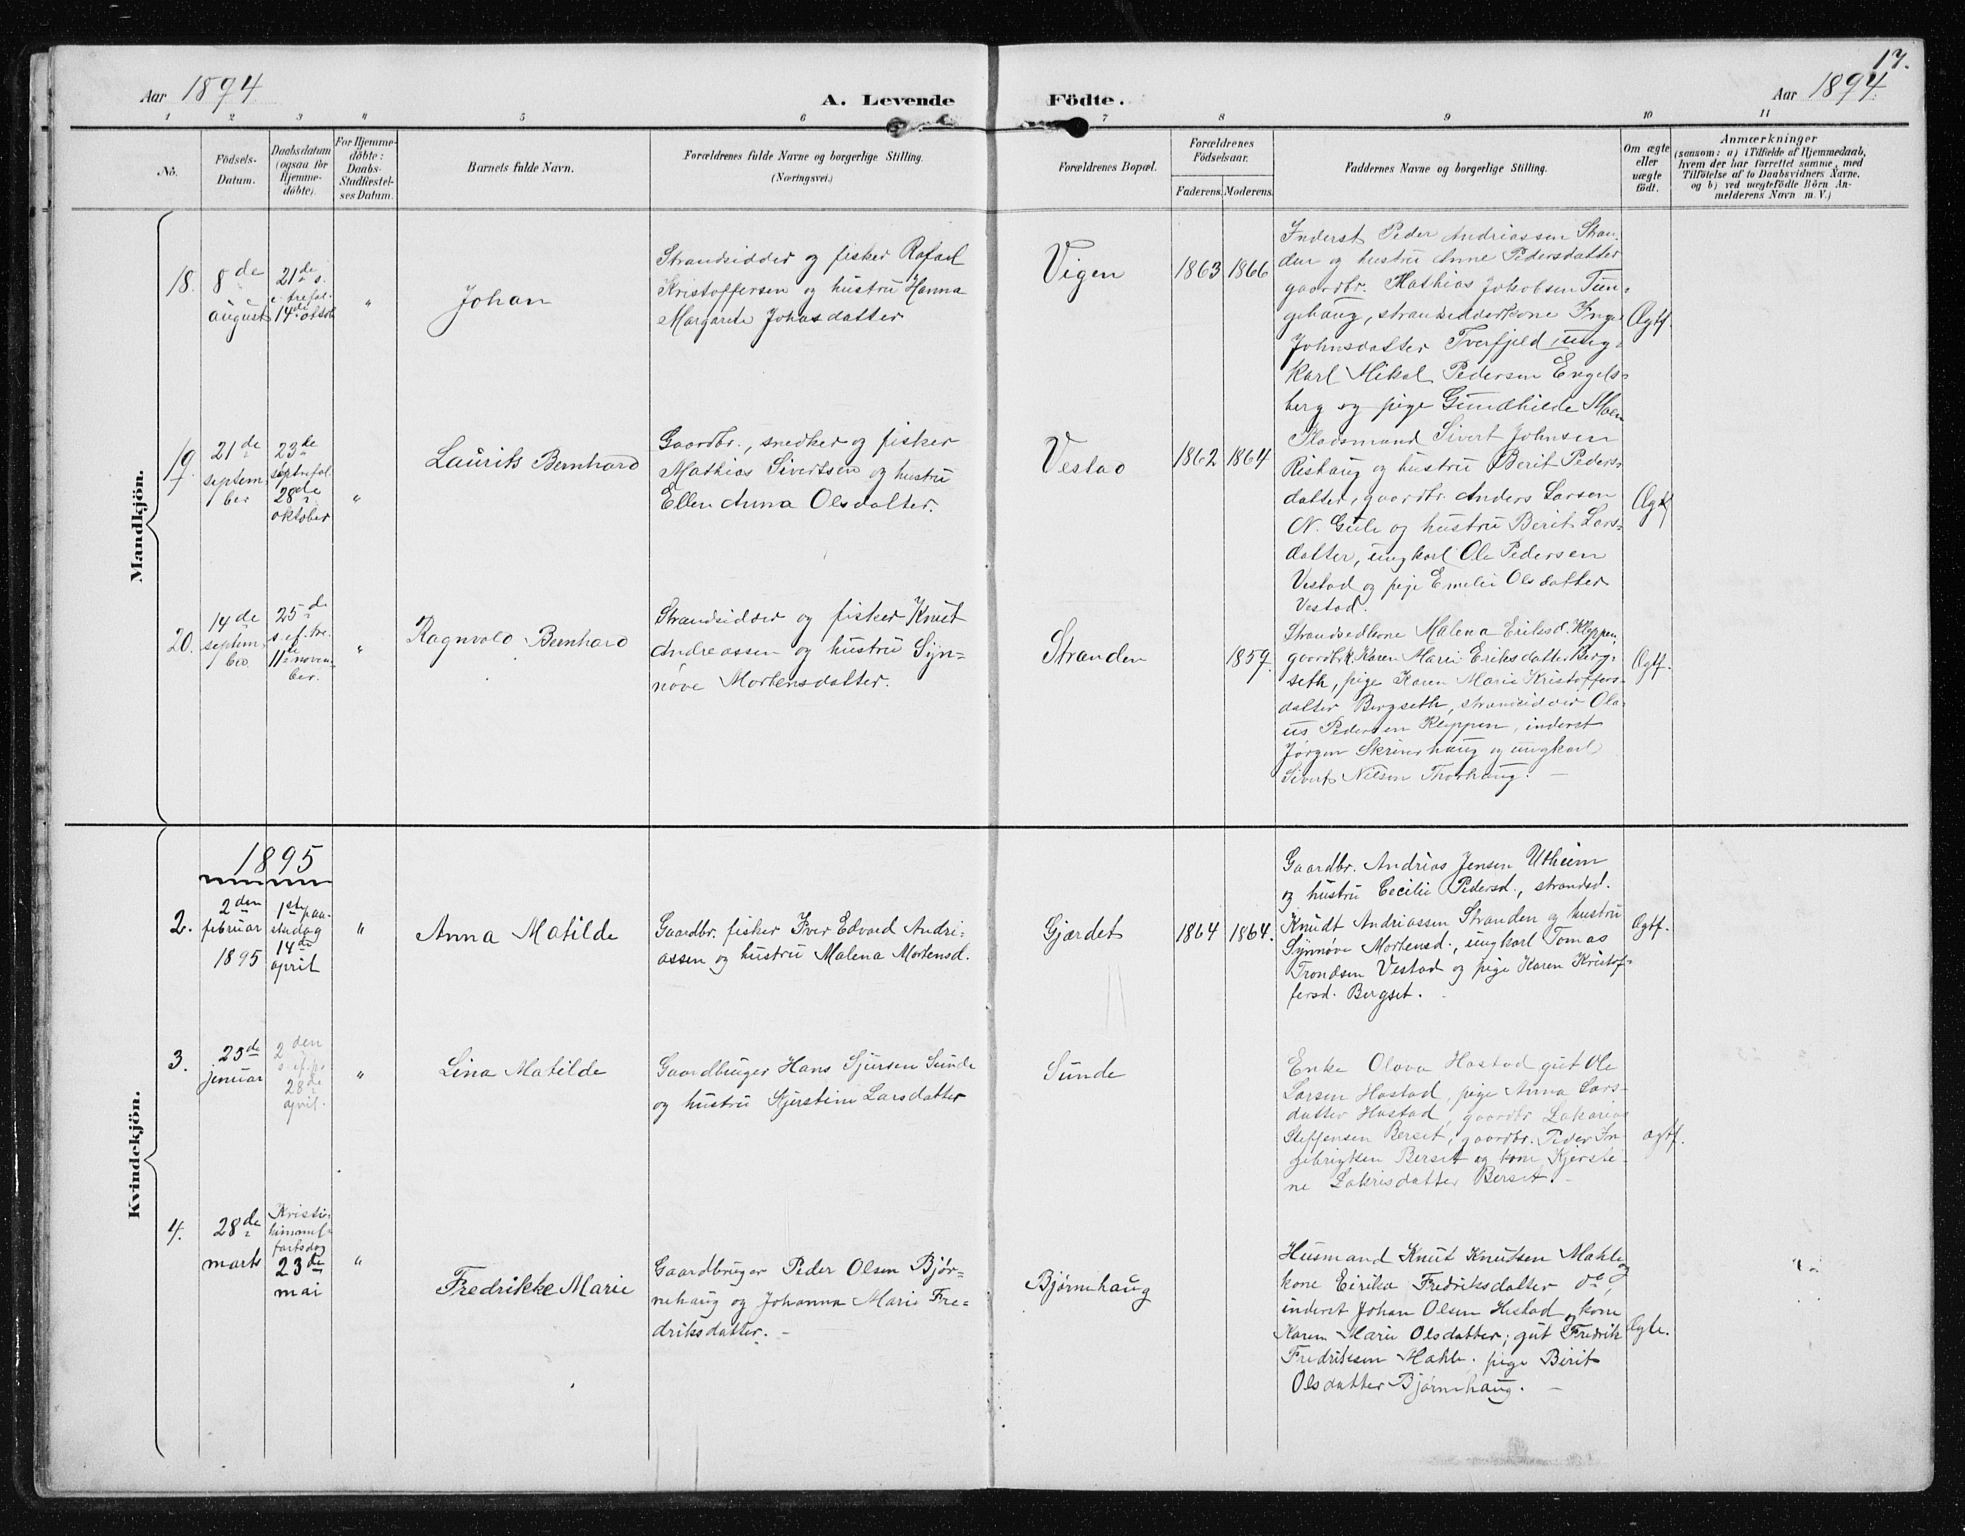 17.
Aar 1894
A. Levende
Födte.
Aar 1894
1 2 3 4 5 6 7 8 9 10 11
No.
Födsels-
Datum.
Daabsdatum
(ogsaa for
Hjemme-
döbte).
For Hjemme-
döbte:
Daabs-
Stadfæstel-
ses Datum.
Barnets fulde Navn.
Forældrenes fulde Navne og borgerlige Stilling.
(Næringsvei.)
Forældrenes Bopæl.
Forældrenes
Födselsaar.
Faderens.
Moderens.
Faddernes Navne og borgerlige Stilling.
Om ægte
eller
uægte
födt.
Anmærkninger
(saasom: a) i Tilfælde af Hjemmedaab,
hvem der har forrettet samme, med
Tilföielse af to Daabsvidners Navne,
og b) ved uægtefödte Börn An-
melderens Navn m. V.)
Mandkjön.
18.
8de
august
21de s.
e. trefol.
14de oktob
"
Johan
Strandsidder og fisker Rafael
Kristoffersen og hustru Hanna
Margarete Johasdatter
Vigen
1863
1866
Inderst Peder Andriassen Stran-
den og hustru Anne Pedersdatter
gaardbr. Mathias Jakobsen Tun-
gehaug, strandsidderkone Inge
Johnsdatter Tverfjeld, ung-
karl Mikal Pedersen Engels-
berg og pige Gundhilde Moen
Ægtf.
19.
21de
septem-
ber
23de
s. e. trefol.
28de
oktober
"
Laurits Bernhard
Gaardbr., snedker og fisker
Mathias Sivertsen og hustru
Ellen Anna Olsdatter.
Vestad
1862
1864
Pladsmand Sivert Johnsen
Rishaug og hustru Berit Peders-
datter, gaardbr. Anders Larsen
N. Gule og hustru Berit Lars-
datter, ungkarl Ole Pedersen
Vestad og pige Emelie Olsdatter
Vestad.
Ægtf
20.
14de
septem-
ber.
25de
s. ef. tre.
11te novem-
ber.
"
Ragnvald Bernhard
Strandsidder og fisker Knut
Andreassen og hustru Syn-
növe Mortensdatter.
Stranden
1859.
Strandsedkone Malena Eriksd. Kleppen,
gaardbrk. Karen Marie Eriksdatter Berg-
seth, pige Karen Marie Kristoffers-
datter Bergseth, strandsidder Ola-
us Pedersen Kleppen, inderst
Jørgen Skrinshaug og ungkarl
Sivert Nilsen Thorhaug. —
Ægtf.
Kvindekjön.
1895
2.
2den
februar
1895
1ste paa-
skedag
14de
april
"
Anna Matilde
Gaardbr. fisker Iver Edvard Andri-
assen og hustru Malena Mortensd.
Gjærdet
1864
1864.
Gaardbr. Andrias Jensen Utheim
og hustru Cecilie Pedersd., strandsd.
Knudt Andriassen Stranden og hustru
Synnøve Mortensd., ungkarl Tomas
Trondsen Vestad og pige Karen Kristof-
fersd. Bergset.
Ægtf.
3.
23de
januar
2den
s. ef. p.
28de
april.
"
Lina Matilde
Gaardbruger Hans Sjursen Sunde
og hustru Kjerstine Larsdatter
Sunde
Enke Olava Hostad gut Ole
Larsen Hostad, pige Anna Lars-
datter Hostad, gaardbr Zakarias
Steffensen Berset, gaardbr. Peder In-
gebrigtsen Berset og kone Kjersti-
ne Zakrisdatter Berset.
ægtf.
4.
28de
marts
Kristi-
himmel-
fartsdag
23de
mai
"
Fredrikke Marie
Gaardbruger Peder Olsen Bjør-
nehaug og Johanna Marie Fre-
driksdatter. —
Bjørnehaug
Husmand Knut Knutsen Mahle og
kone Eirika Fredriksdatter do,
inderst Johan Olsen Hestad, og kone
Karen Marie Olsdatter; gut Fredrik
Fredriksen Mahle. pige Berit
Olsdatter Bjørnehaug. —
Ægte.